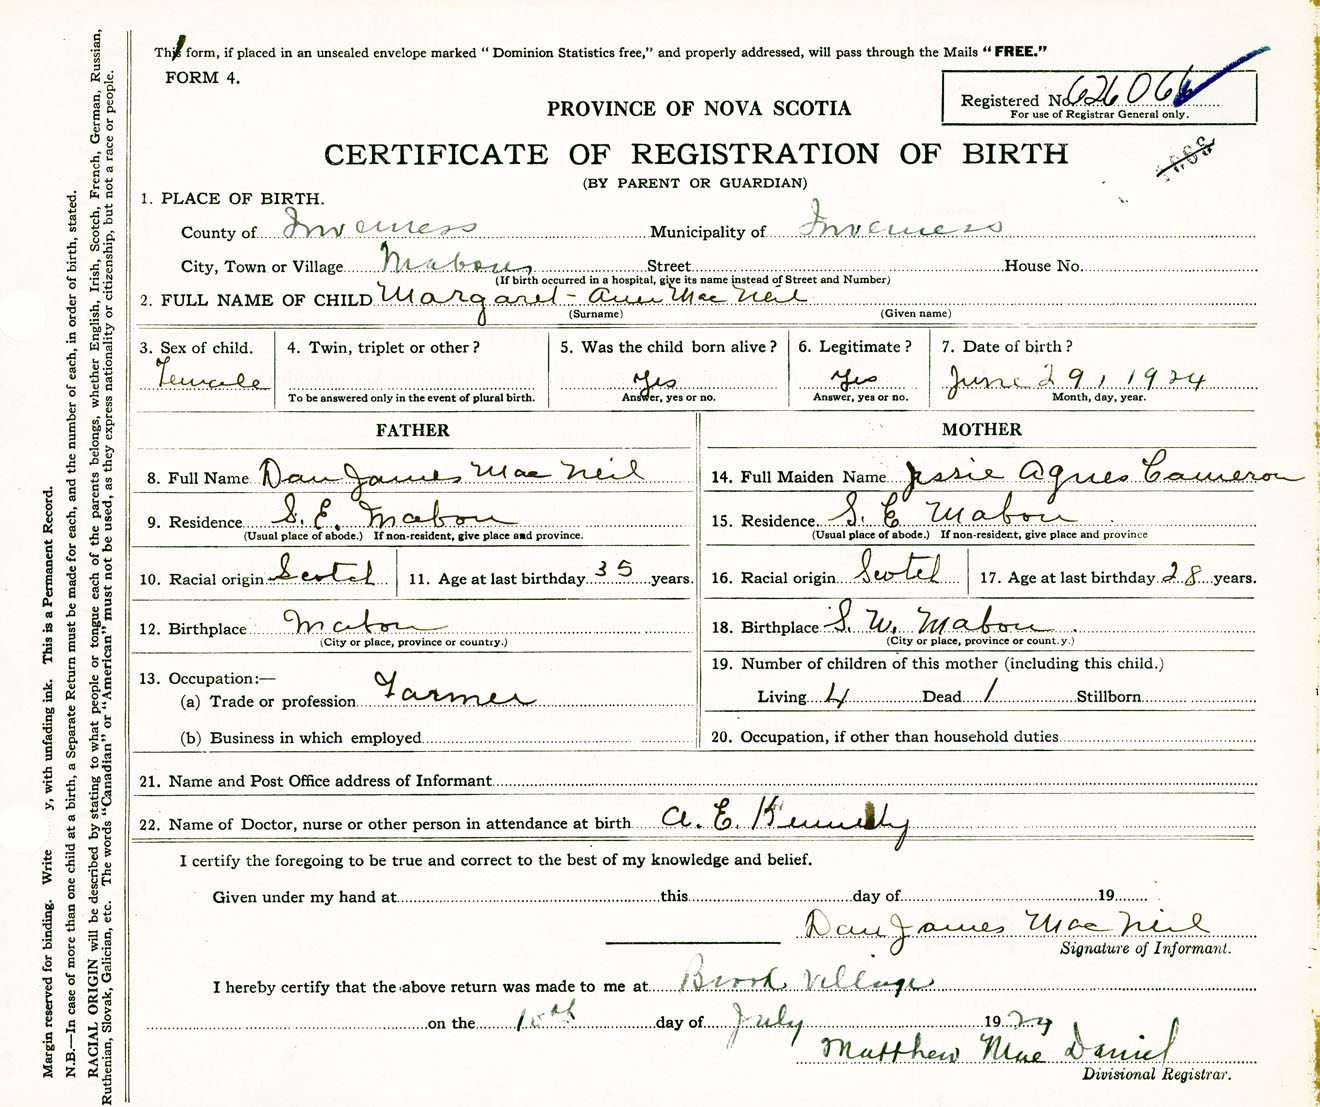 This form, if placed in an unsealed envelope marked "Dominion Statistics free," and properly addressed, will pass through the Mails "FREE."
FORM 4.
Registered No. 626066
For use of Registrar General only.
PROVINCE OF NOVA SCOTIA
CERTIFICATE OF REGISTRATION OF BIRTH
(BY PARENT OR GUARDIAN)
1. PLACE OF BIRTH.
County of Inverness Municipality of Inverness
City, Town or Village Mabou Street House No.
(If birth occurred in a hospital, give its name instead of Street and Number)
2. FULL NAME OF CHILD Margaret - Ann Mac Neil
(Surname) (Given name)
3. Sex of child. 4. Twin, triplet or other? 5. Was the child born alive? 6. Legitimate? 7. Date of birth?
Female Yes Yes June 29, 1924
To be answered only in the event of plural birth. Answer, yes or no. Answer, yes or no. Month, day, year.
FATHER
8. Full Name Dan James Mac Neil
9. Residence S. E. Mabou
(Usual place of abode.) If non-resident, give place and province.
10. Racial origin Scotch 11. Age at last birthday 35 years.
12. Birthplace Mabou
(City or place, province or country.)
13. Occupation:—
(a) Trade or profession Farmer
(b) Business in which employed
MOTHER
14. Full Maiden Name Jessie Agnes Cameron
15. Residence S. E Mabou
(Usual place of abode.) If non-resident, give place and province
16. Racial origin Scotch 17. Age at last birthday 28 years.
18. Birthplace S. W. Mabou.
(City or place, province or country.)
19. Number of children of this mother (including this child.)
Living 4 Dead 1 Stillborn
20. Occupation, if other than household duties
21. Name and Post Office address of Informant
22. Name of Doctor, nurse or other person in attendance at birth A. E. Kennedy
I certify the foregoing to be true and correct to the best of my knowledge and belief.
Given under my hand at this day of 19
Dan James Mac Neil
Signature of Informant.
I hereby certify that the above return was made to me at Brook Village
on the 10th day of July 1924
Matthew Mac Daniel
Divisional Registrar.
Margin reserved for binding. Write y, with unfading ink. This is a Permanent Record.
N.B.—In case of more than one child at a birth, a Separate Return must be made for each, and the number of each, in order of birth, stated.
RACIAL ORIGIN will be described by stating to what people or tongue each of the parents belongs, whether English, Irish, Scotch, French, German, Russian,
Ruthenian, Slovak, Galician, etc. The words "Canadian" or "American" must not be used, as they express nationality or citizenship, but not a race or people.